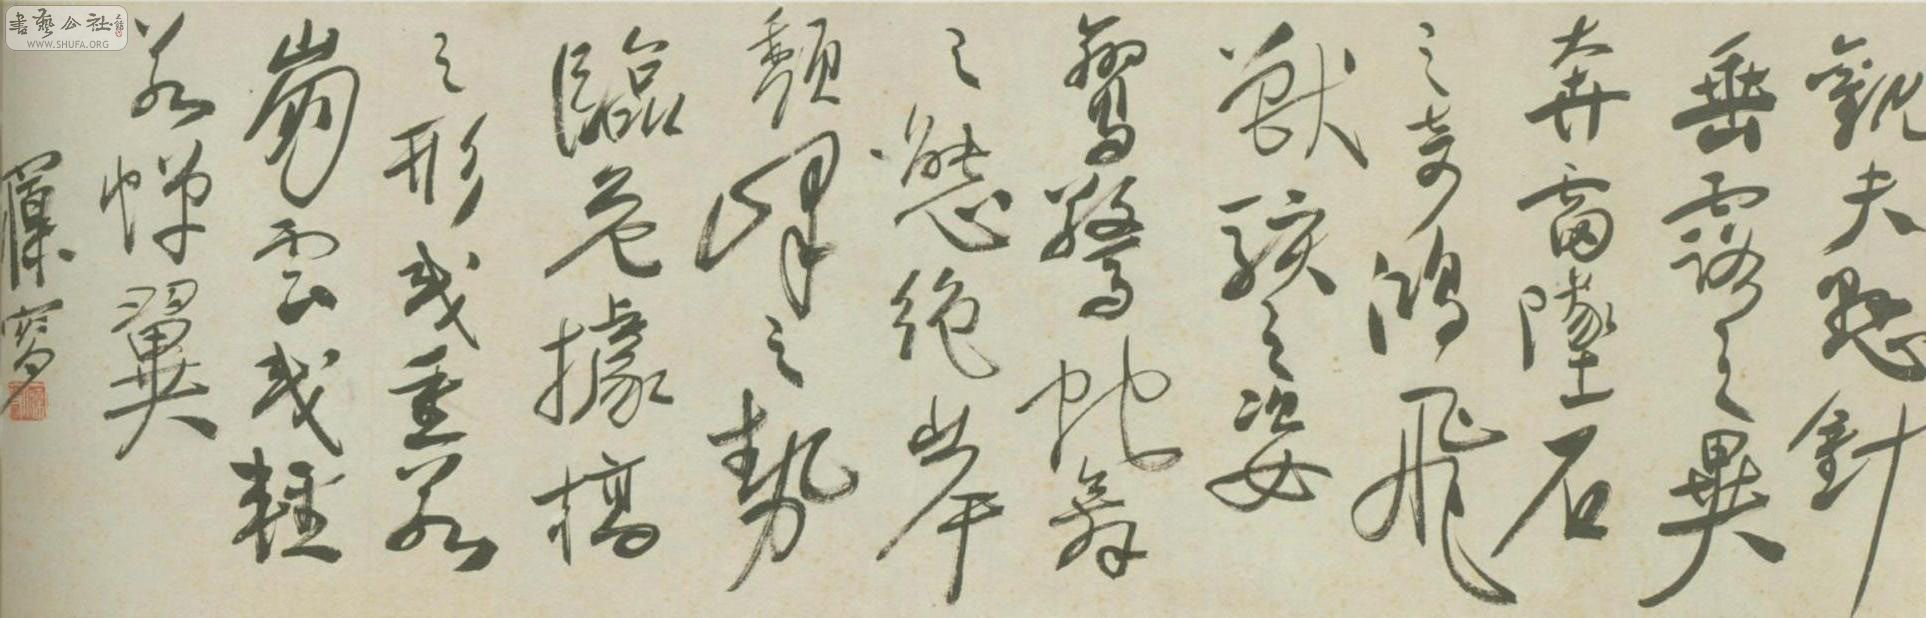 觀夫懸針
垂露之異
奔雷墜石
之奇鴻飛
獸駭之姿
鸞驚蛇舞
之態絕岸
頹峰之勢
臨危據槁
之形或重若
崩雲或輕
若蟬翼
書藝公社
WWW.SHUFA.ORG